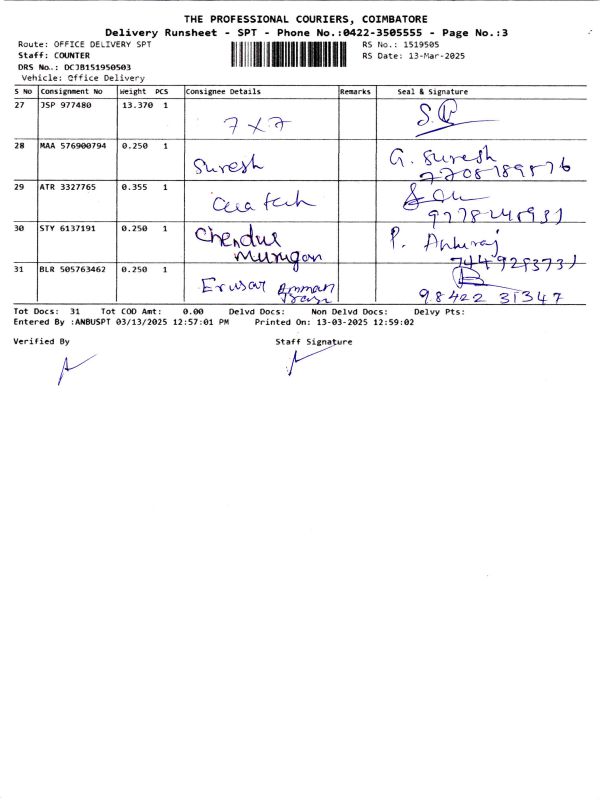 THE PROFESSIONAL COURIERS, COIMBATORE
Delivery Runsheet - SPT - Phone No.:0422-3505555 - Page No.:3
Route: OFFICE DELIVERY SPT RS No.: 1519505
Staff: COUNTER RS Date: 13-Mar-2025
DRS No.: DCJB151950503
Vehicle: Office Delivery
S No Consignment No Weight PCS Consignee Details Remarks Seal & Signature
27 JSP 977480 13.370 1
7 x 7
28 MAA 576900794 0.250 1 G. Suresh
Suresh
29 ATR 3327765 0.355 1
30 STY 6137191 0.250 1 P.
Chendur
Murugan
31 BLR 505763462 0.250 1
Amman
98422 31347
Tot Docs: 31 Tot COD Amt: 0.00 Delvd Docs: Non Delvd Docs: Delvy Pts:
Entered By :ANBUSPT 03/13/2025 12:57:01 PM Printed On: 13-03-2025 12:59:02
Verified By Staff Signature